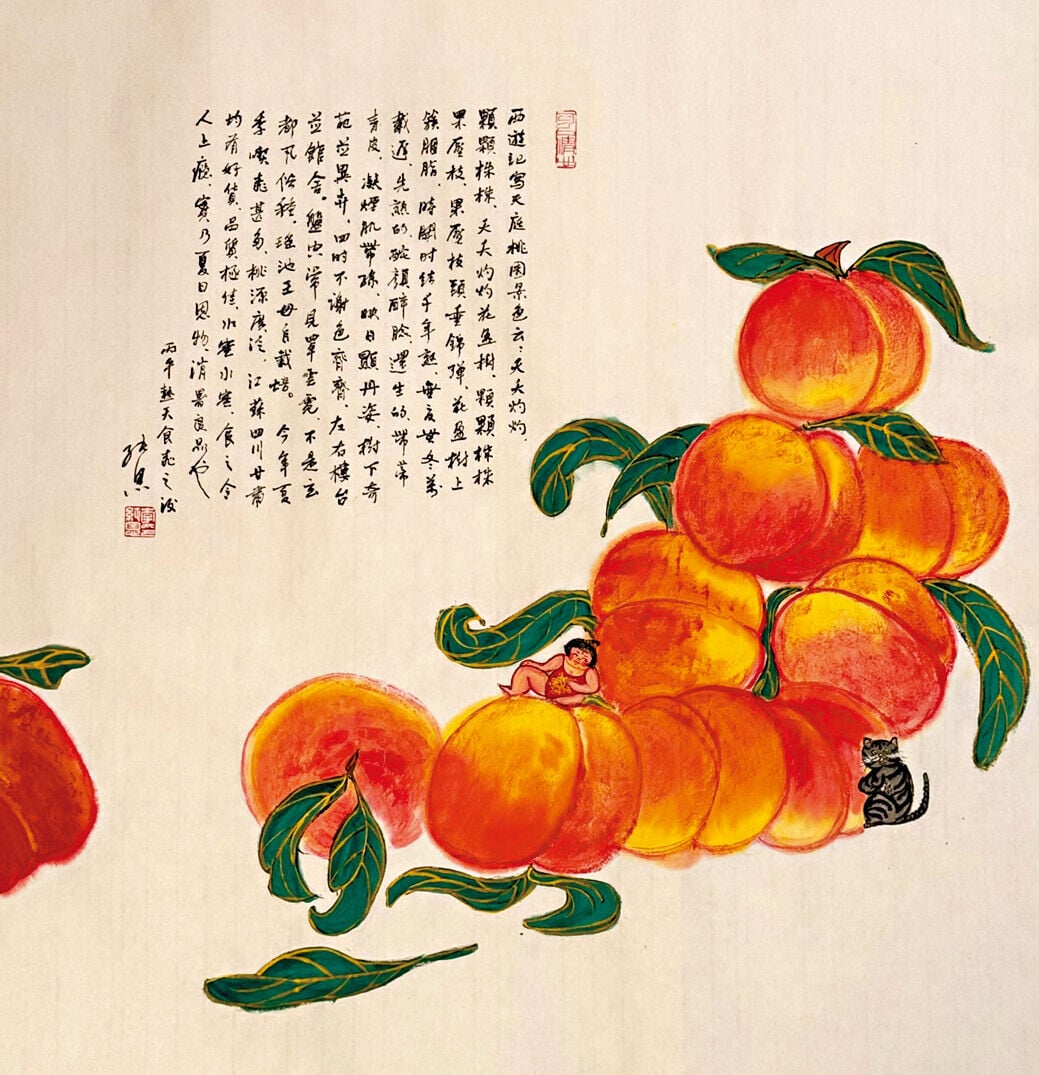 西遊記寫天庭桃園景色云：夭夭灼灼，
顆顆株株，夭夭灼灼花盈樹，顆顆株株
果壓枝，果壓枝頭垂錦彈，花盈樹上
簇胭脂，時開時結千年熟，無夏無冬萬
載遲，先熟的，酡顏醉臉，還生的，帶蒂
青皮，凝煙肌帶綠，映日顯丹姿，樹下奇
葩並異卉，四時不謝色齊齊，左右樓台
並館舍，盤空常見罩雲霓，不是玄
都凡俗種，瑤池王母自栽培。今年夏
季喫桃甚多，桃源廣泛，江蘇四川甘肅
均有好貨，品質極佳，水蜜水蜜，食之令
人上癮，實乃夏日恩物，消暑良品也
丙午熱天食桃之後